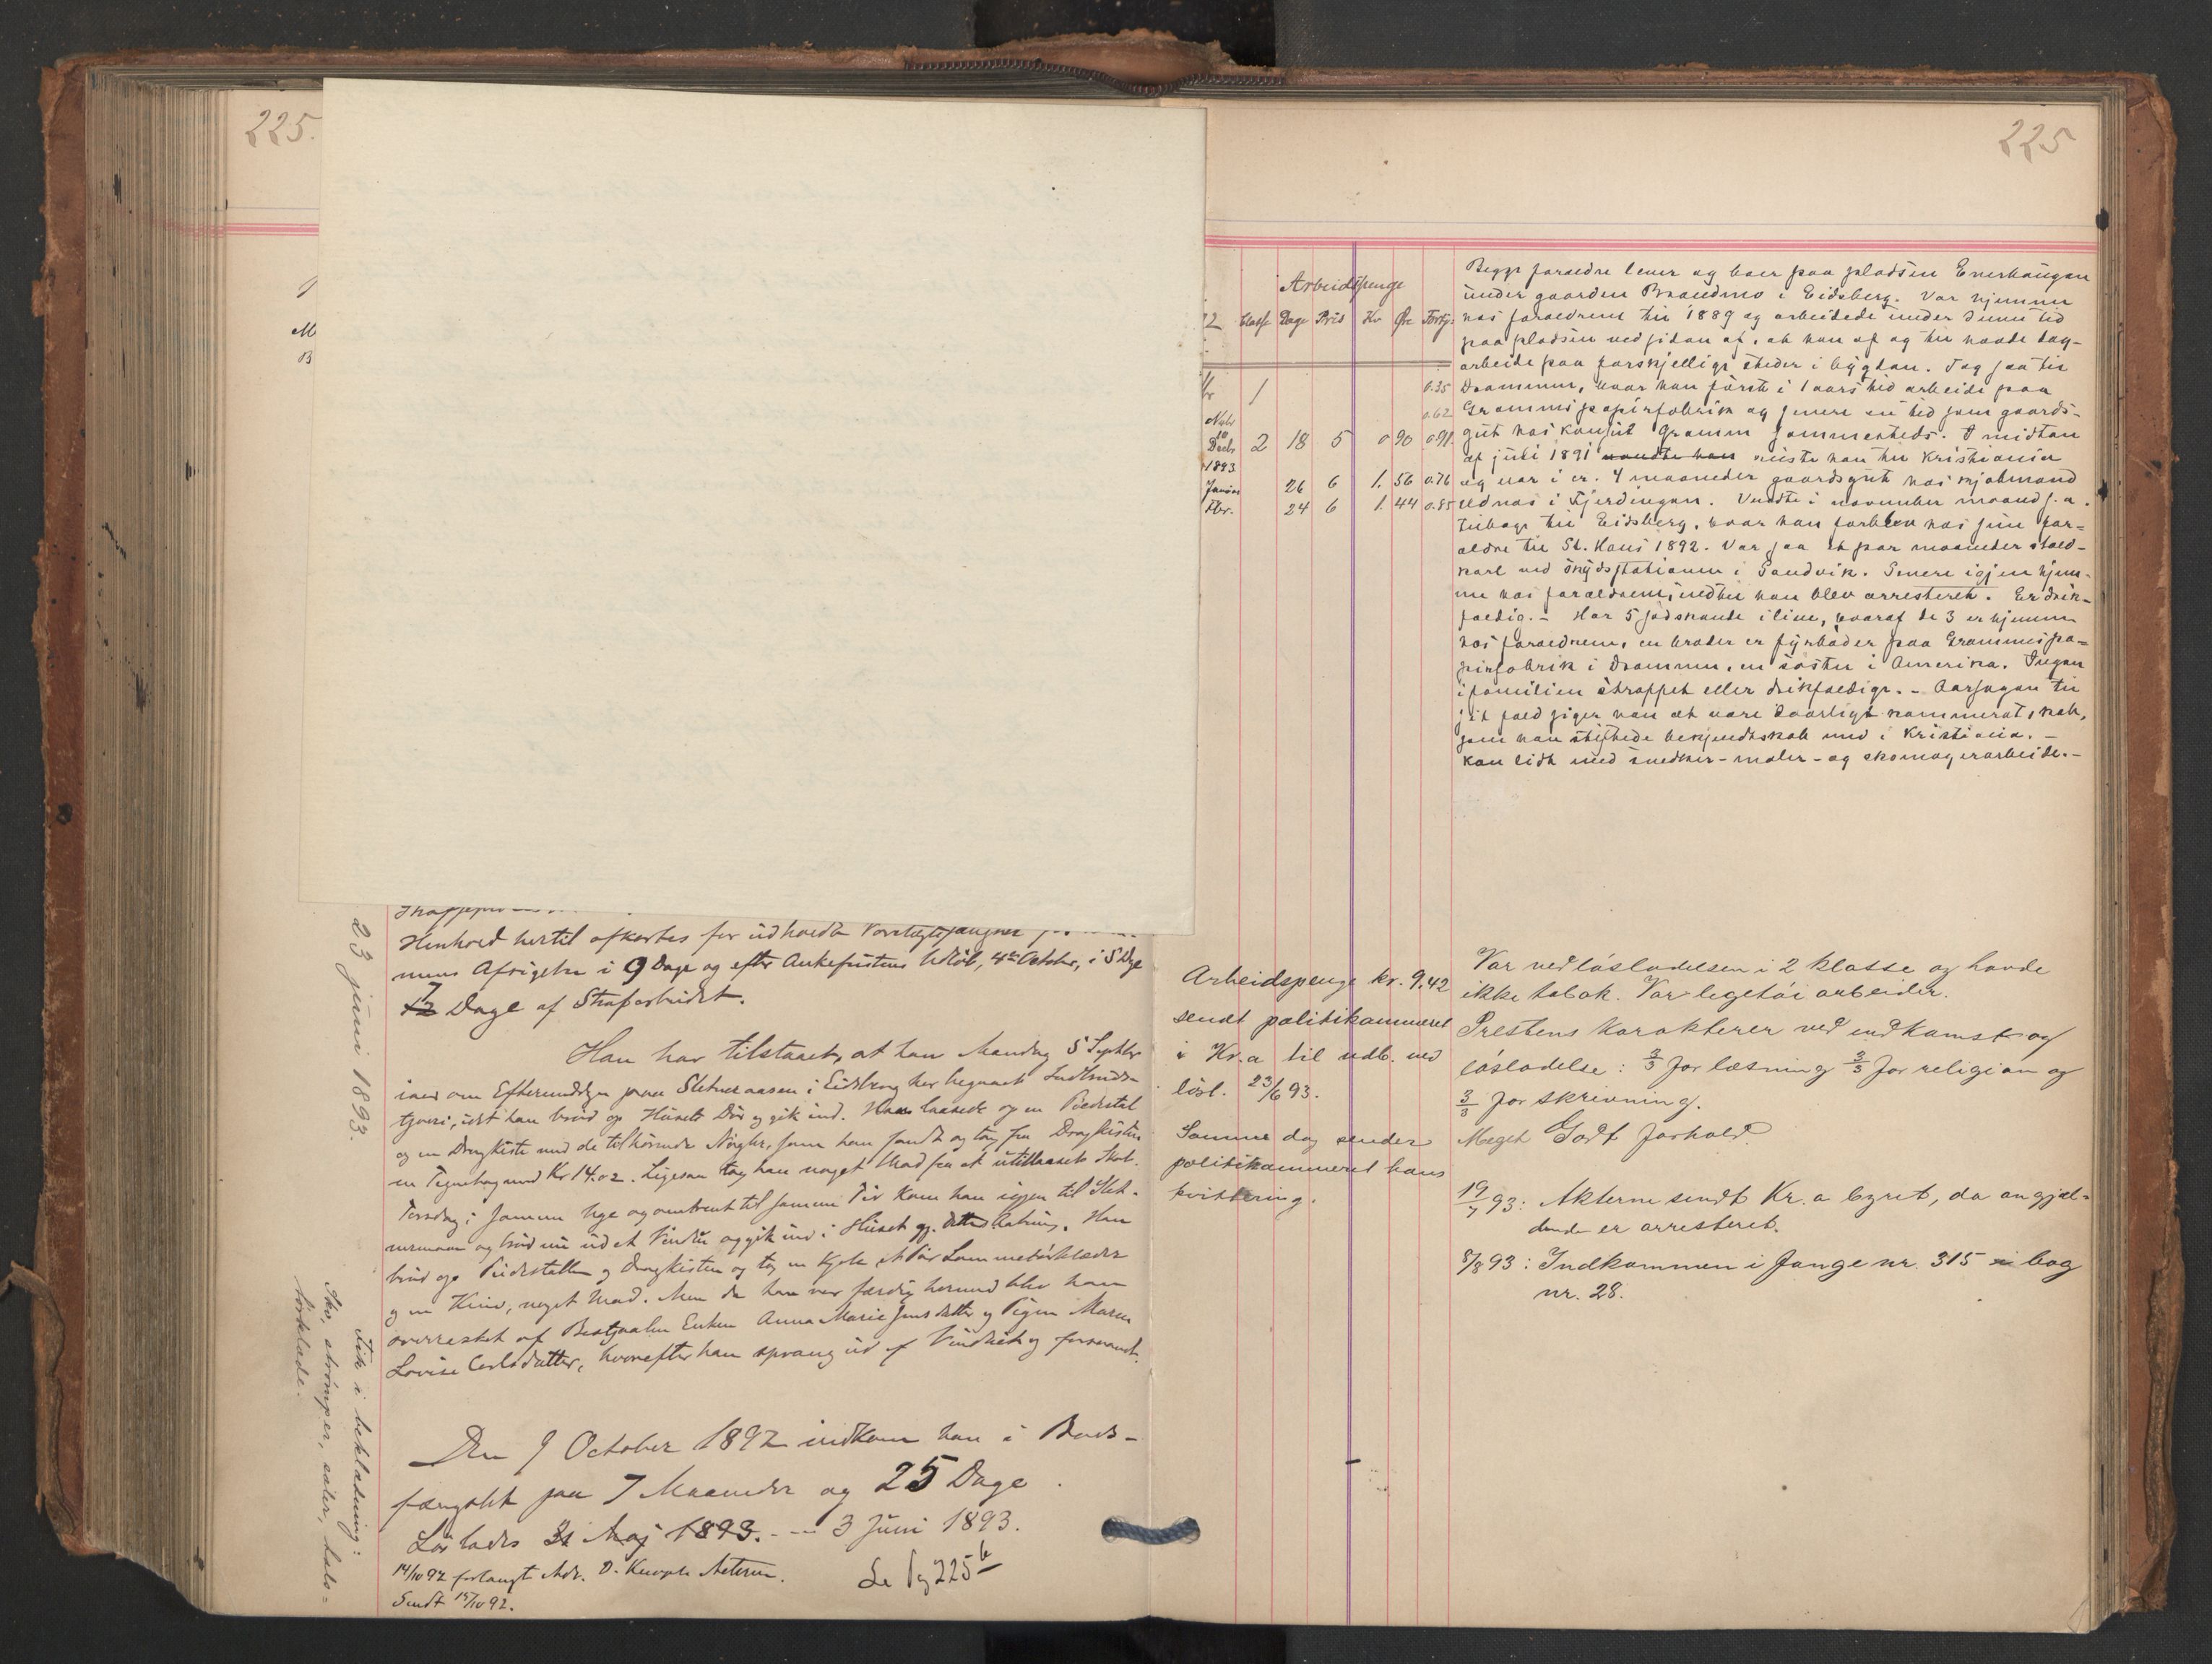 225.
Henhold hertil afkortes for udholdt Varetægtsfængsel
mens Afsigelse i 9 Dage og efter Ankefristens Udløb, 4de October, i 5 Dage
12 7 Dage af Strafarbeidet.
Han har tilstaaet, at han Mandag 5 Septbr
iaar om Eftermiddagen paa Sletneraasen i Eidsberg har begaaet Indbruds-
tyveri, idet han brød op Husets Dør og gik ind. Han laasede op en Piedestal
og en Dragkiste med de tilhørende Nøgler, som han fandt og tog fra Dragkisten
en Tegnebog med Kr 14.02. Ligesom tog han noget Mad fra et utillaaset Skab.
Torsdag i samme Uge og omtrent til samme Tid kom han igjen til Slet-
neraasen og brød nu ud et Vindu og gik ind i Huset gj. dette Aabning. Han
brød op Piedestallen og Dragkisten og tog en Kjole, et Par Lommetørklæder
og en Kniv, noget Mad. Men da han var færdig hermed blev han
overrasket af Bestjaalne Enken Anna Marie Jensdatter og Pigen Maren
Lovise Carlsdatter, hvorefter han sprang ud af Vinduet og forsvandt.
Den 9 October 1892 indkom han i Bods-
fængslet paa 7 Maaneder og 25 Dage.
Løslades 31 Maj 1893. - 3 Juni 1893.
14/10 92 forlangt Adr. D.
Sendt 14/10 92.
Se Pg 225 b
23 juni 1893.
Fik i beklædning:
Sko, strømper, seler, hals-
tørklæde.
225
Arbeidspenge
Classe Dage Pris Kr Øre Fortj.
1 0.35
0.62
Novbr
10
Decbr 2 18 5 0 90 0.91
1893
Januar 26 6 1. 56 0.76
Fbr. 24 6 1. 44 0.85
Begge foraeldre lever og boer paa pladsen Enerhaugen
under gaarden Brandmo i Eidsberg. Var hjemme
hos foraeldrene til 1889 og arbeidede under denne tid
paa pladsen ved siden af, at han af og til havde dag-
arbeide paa forskjellige steder i bygden. Tog saa til
Drammen, hvor han først i 1 aars tid arbeide paa
Grammis papirfabrik og senere en tid som gaards-
gut hos konsul Gramm sammesteds. I midten
af juli 1891 vendte han reiste han til Kristiania
og var i cr. 4 maaneder gaardsgut hos kjøbmand
Udnæs i Fjerdingen. Vendte i november maaned s.a.
tilbage til Eidsberg, hvor han forblev hos sine for-
ældre til St. Hans 1892. Var saa et par maaneder stald-
karl ved skydsstationen i Sandvik. Senere igjen hjem-
me hos foraeldrene, indtil han blev arresteret. Er drik-
faeldig. - Har 5 sødskende i live, hvoraf de 3 er hjemme
hos foraeldrene, en broder er fyrbøder paa Grammis pa-
pirfabrik i Drammen, en søster i Amerika. Ingen
i familien straffet eller drikfaeldige. - Aarsagen til
sit fald siger han at være daarligt kammeratskab,
som han stiftede bekjendtskab med i Kristiania. -
Kan lidt med snedker-maler-og skomagerarbeide.-
Arbeidspenge kr. 9.42
sendt politikammeret
i Kr.a til udb. ved
løsl. 23/6 93.
Samme dag sender
politikammeret hans
kvittering.
Var ved løsladelsen i 2 klasse og havde
ikke tabak. Var legetøi arbeider.
Prestens karakterer ved indkomst og
løsladelse: 3/3 for læsning 3/3 for religion og
3/3 for skrivning.
Meget Godt forhold.
19/7 93: Akterne sendt Kr.a byret, da angjæl-
dende er arresteret.
8/8 93: Indkommen i fange nr. 315 i bog
nr. 28.